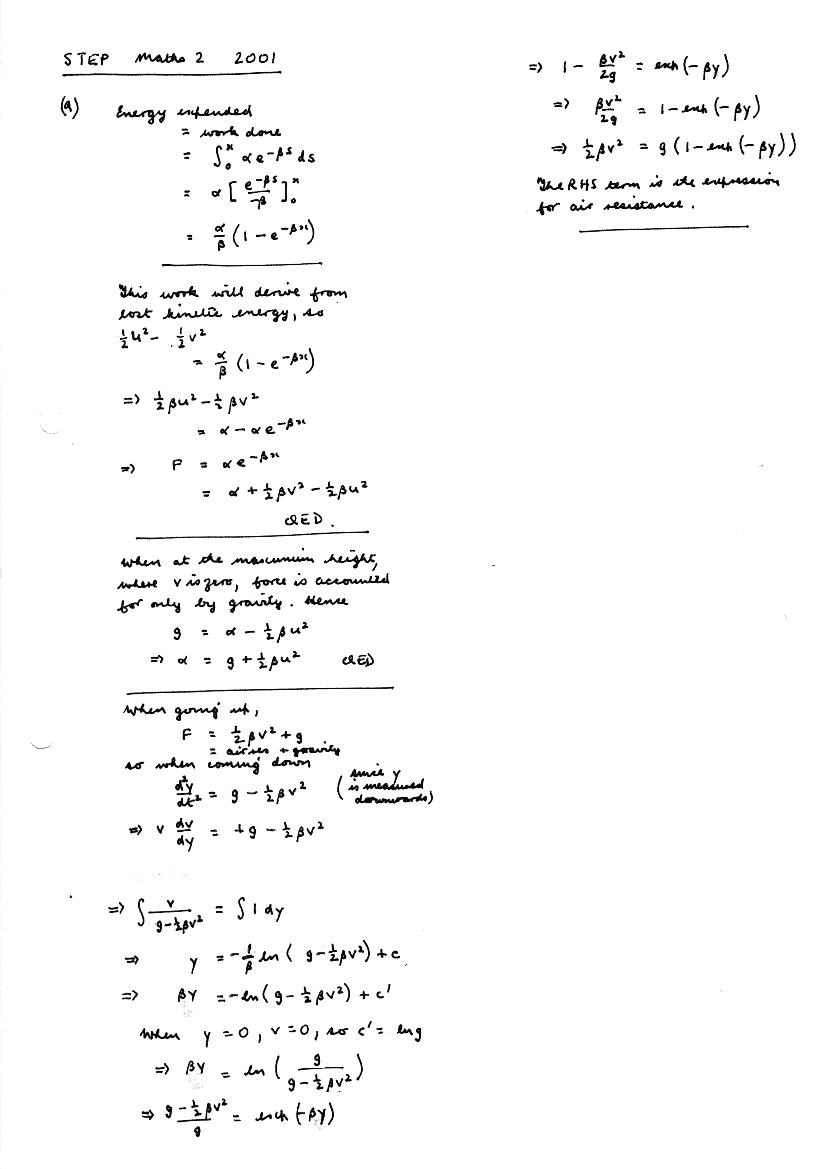 STEP Maths 2 2001
(9) Energy expended
= work done
= ∫₀ˣ αe^(-βs) ds
= α [e^(-βs)/-β]₀ˣ
= α/β (1 - e^(-βx))
This work will derive from
lost kinetic energy, so
½u² - ½v²
= α/β (1 - e^(-βx))
⇒ ½βu² - ½βv²
= α - αe^(-βx)
⇒ F = αe^(-βx)
= α + ½βv² - ½βu²
QED.
When at the maximum height,
where v is zero, force is accounted
for only by gravity. Hence
g = α - ½βu²
⇒ α = g + ½βu² QED
When going up,
F = ½βv² + g
= air res + gravity
so when coming down
d²y/dt² = g - ½βv² (since y
is measured
downwards)
⇒ v dv/dy = +g - ½βv²
⇒ ∫ v/(g-½βv²) = ∫ 1 dy
⇒ y = -1/β ln(g-½βv²) + c
⇒ βy = -ln(g-½βv²) + c'
When y=0, v=0, so c' = ln g
⇒ βy = ln(g/(g-½βv²))
⇒ (g-½βv²)/g = exp(-βy)
⇒ 1 - βv²/2g = exp(-βy)
⇒ βv²/2g = 1-exp(-βy)
⇒ ½βv² = g(1-exp(-βy))
The RHS term is the expression
for air resistance.